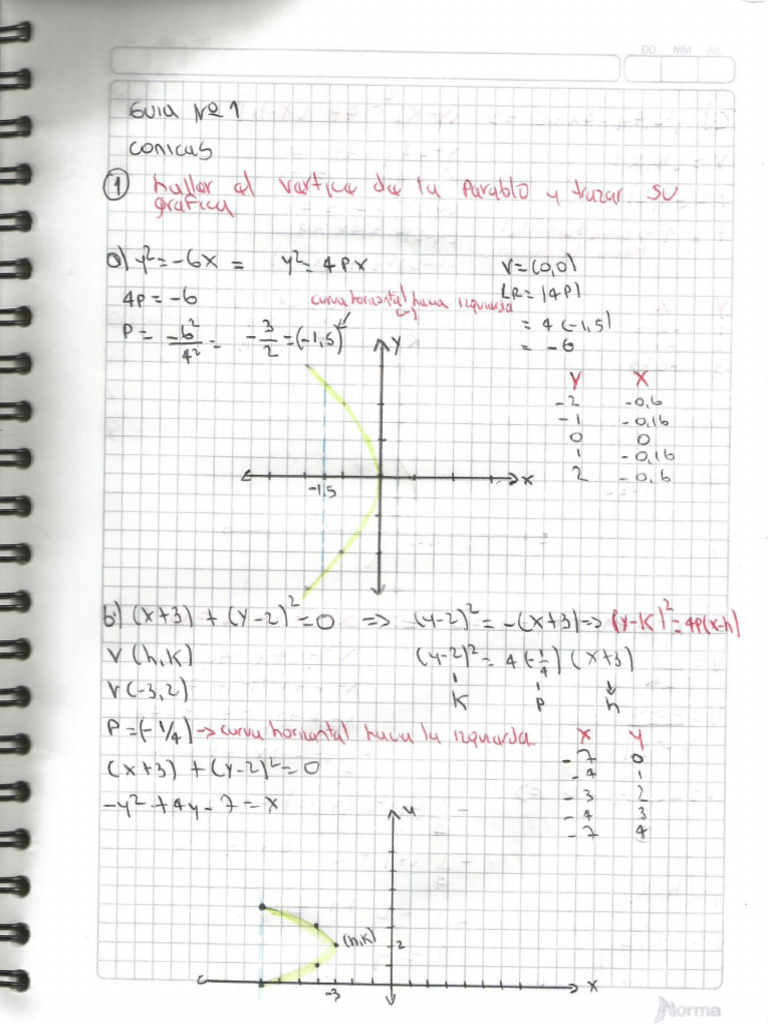 DD MM AA
GUIA Nº 1
CONICAS
① hallar el vertice de la Parablo y trazar su
grafica
a) y² = -6x = y² = 4Px
V = (0,0)
4P = -6
LR = |4P|
curva horizontal hacia izquierda
(-)
= 4 (-1,5)
P = -6² / 4² = -3/2 = (-1,5)
= -6
y
Y X
-2 -0,6
-1 -0,16
0 0
1 -0,16
2 -0,6
-1,5
x
b) (x+3) + (y-2)² = 0 => (y-2)² = -(x+3) => (y-k)² = 4P(x-h)
V (h,k)
(y-2)² = 4 (-1/4) (x+3)
V (-3,2)
k P h
P = (-1/4) → curva horizontal hacia la izquierda
X Y
-7 0
-4 1
-3 2
-4 3
-7 4
(x+3) + (y-2)² = 0
-y² + 4y - 7 = x
y
(h,k)
2
-3
x
Norma